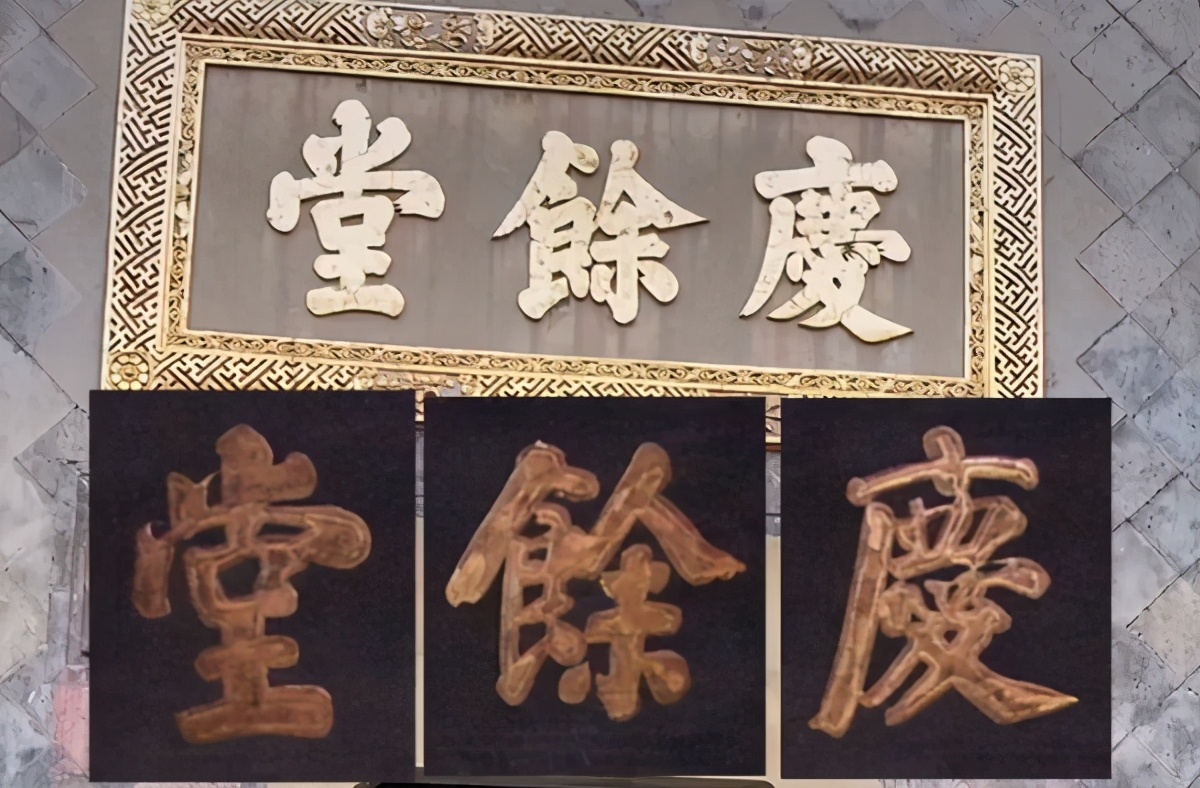 慶餘堂
慶餘堂